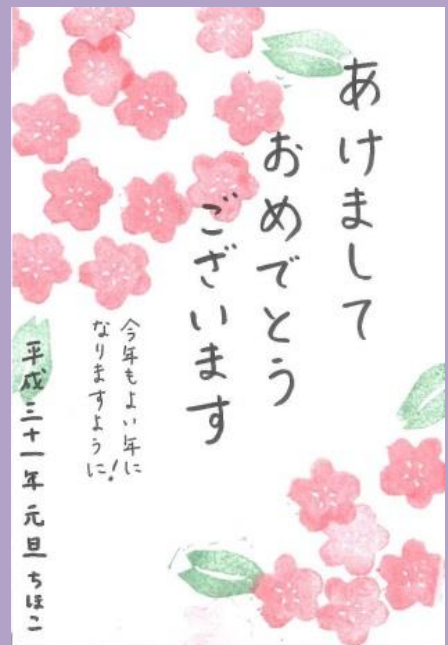 あけまして
おめでとう
ございます
今年もよい年に
なりますように！
平成三十一年 元旦 ちほこ